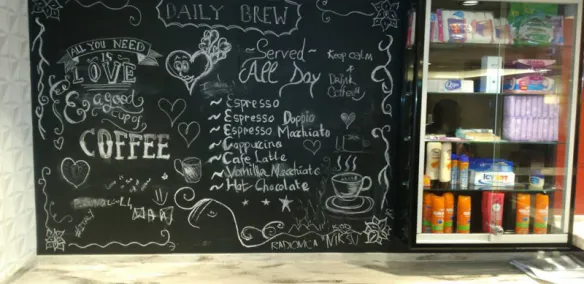 DAILY BREW
ALL YOU NEED
IS
LOVE
& a good
cup of
COFFEE
~Served~
All Day
Keep calm
&
Drink
Coffee!!
~ Espresso
~ Espresso Doppio
~ Espresso Macchiato
~ Cappuccino
~ Cafe Latte
~ Vanilla Macchiato
~ Hot Chocolate
RADIONICA
ICY HOT